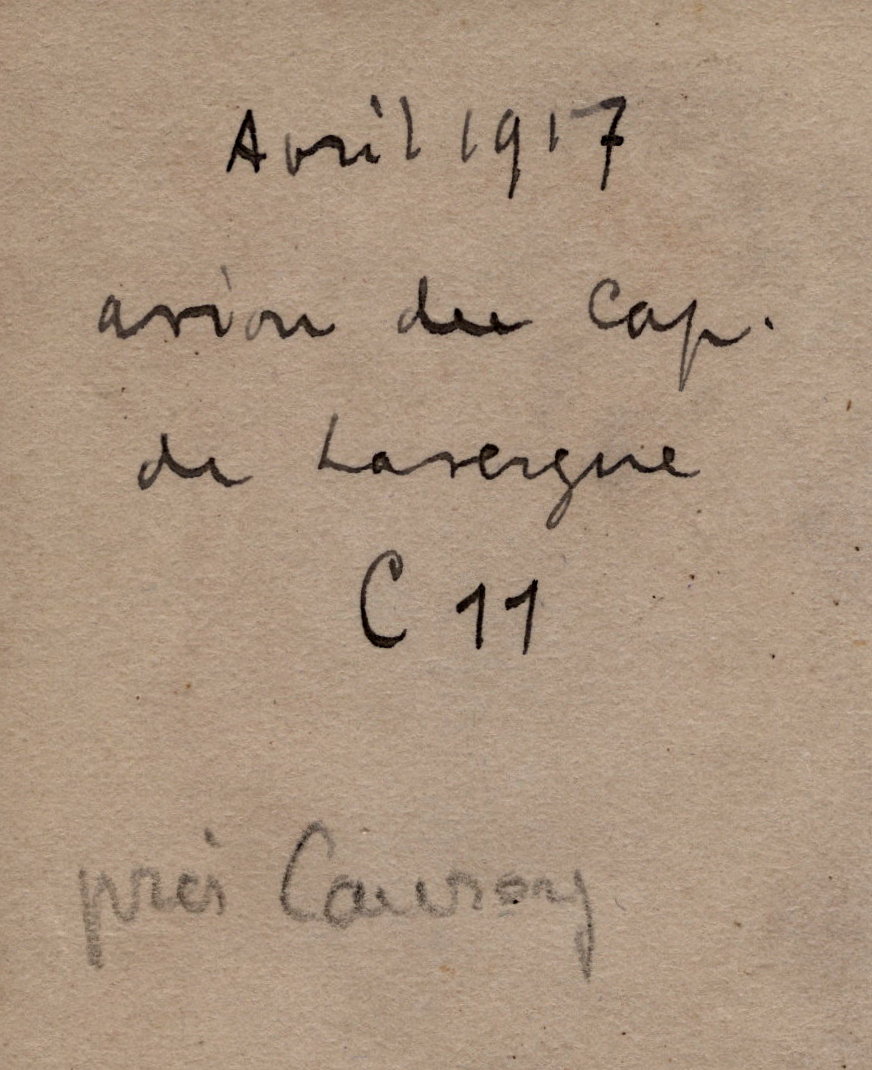 Avril 1917
avion du Cap.
de Lavergne
C 11
près Cauroy